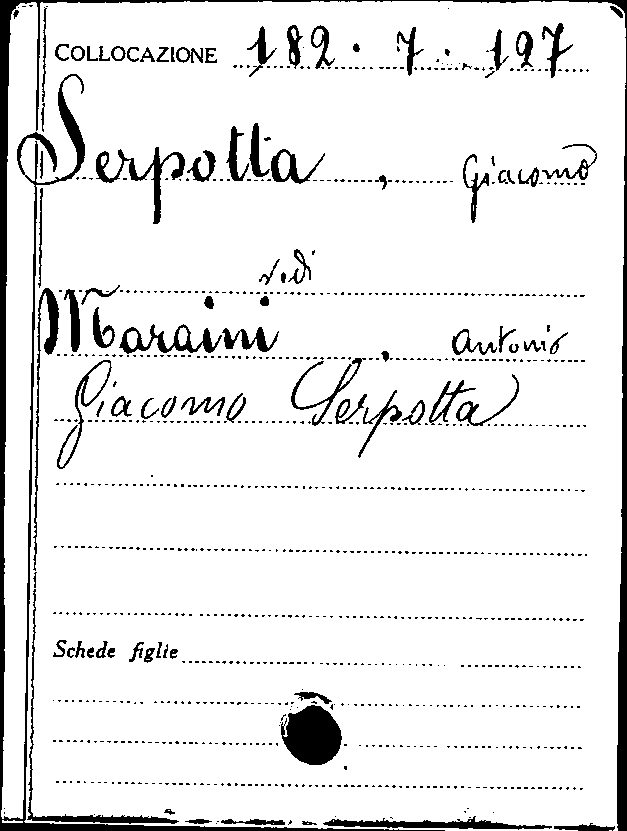 COLLOCAZIONE 182.7.127
Serpotta, Giacomo
vedi
Maraini, Antonio
Giacomo Serpotta
Schede figlie